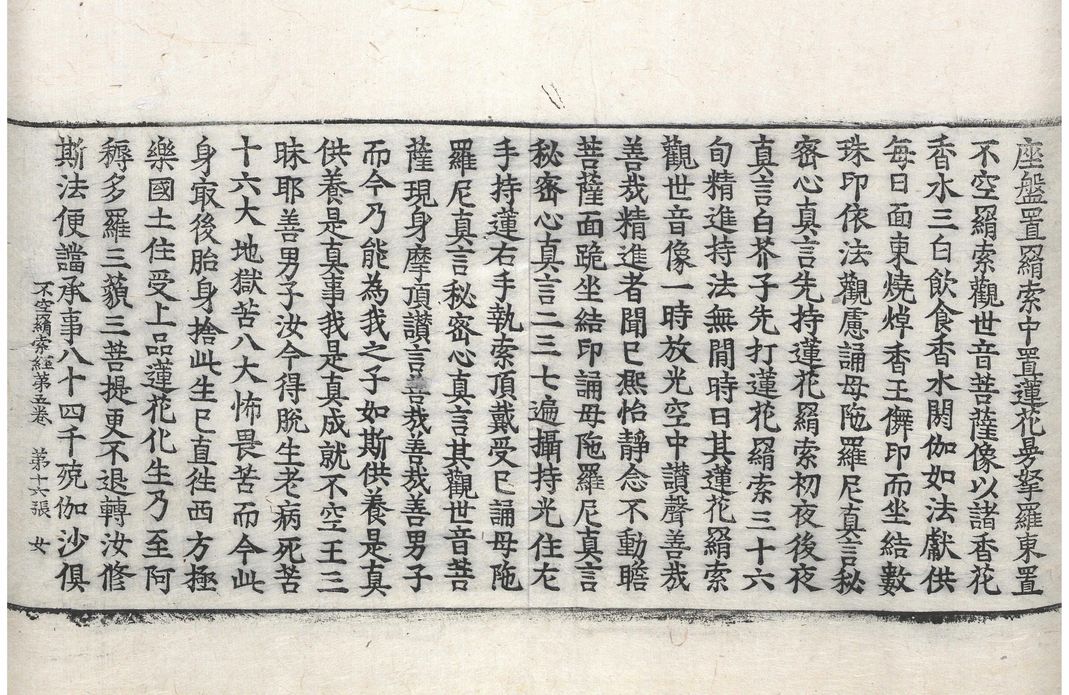 座盤置羂索中置蓮花曼拏羅東置
不空羂索觀世音菩薩像以諸香花
香水三白飲食香水閼伽如法獻供
每日面東燒焯香王儞印而坐結數
珠印依法觀慮誦母陁羅尼真言秘
密心真言先持蓮花羂索初夜後夜
真言白芥子先打蓮花羂索三十六
旬精進持法無閒時日其蓮花羂索
觀世音像一時放光空中讃聲善哉
善哉精進者聞已熈怡靜念不動瞻
菩薩面跪坐結印誦母陁羅尼真言
秘密心真言二三七遍攝持光住左
手持蓮右手執索頂戴受已誦母陁
羅尼真言秘密心真言其觀世音菩
薩現身摩頂讃言善哉善哉善男子
而今乃能為我之子如斯供養是真
供養是真事我是真成就不空王三
昧耶善男子汝今得脫生老病死苦
十六大地獄苦八大怖畏苦而今此
身㝡後胎身捨此生已直徃西方極
樂國土住受上品蓮花化生乃至阿
耨多羅三藐三菩提更不退轉汝修
斯法便譡承事八十四千殑伽沙俱
不空羂索經第五卷 第十六張 女